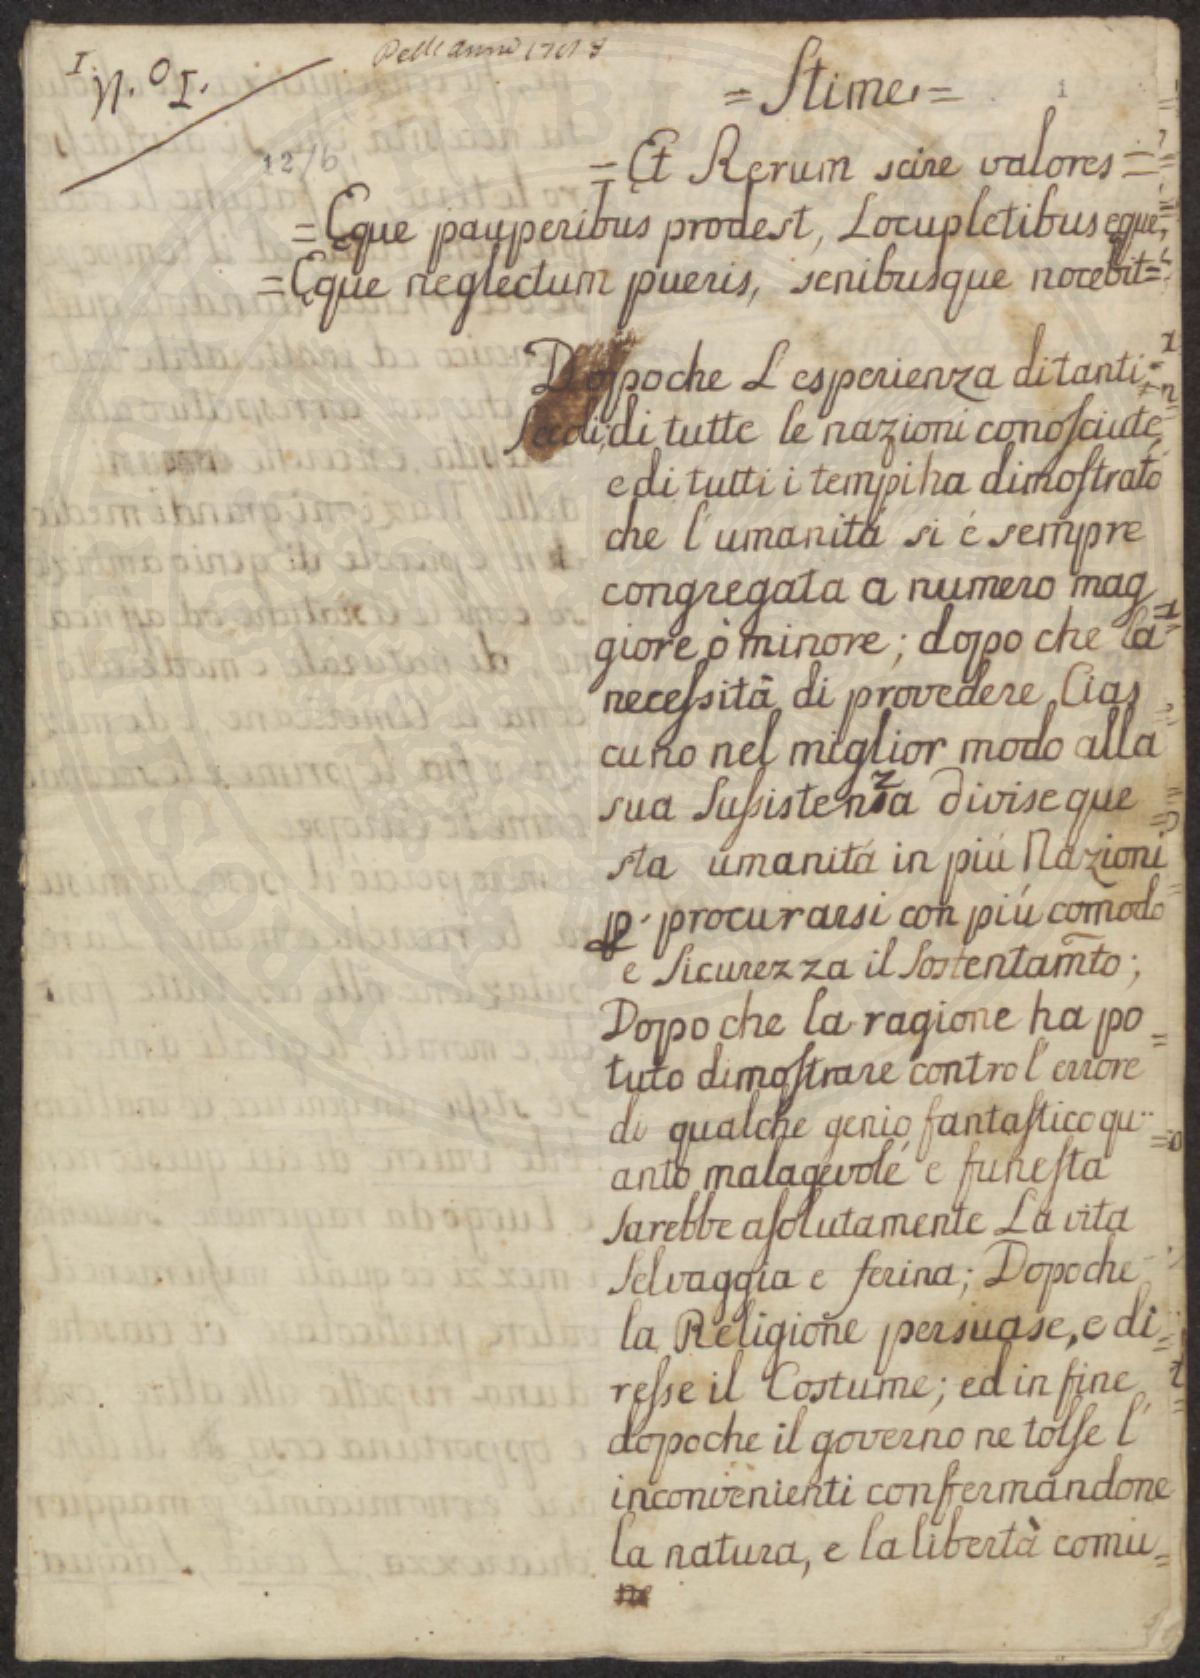 I.
N.º I.
Dell'anno 1768
1
= Stime =
12/6
= Et Rerum scire valores =
= Eque pauperibus prodest, Locupletibus eque,
= Eque neglectum pueris, senibusque nocebit =
Dopoche L'esperienza di tanti
Secoli, di tutte le nazioni conosciute,
e di tutti i tempi ha dimostrato
che l'umanitá si é sempre
congregata a numero mag
giore ò minore; dopo che la
necessitá di provedere Cias
cuno nel miglior modo alla
sua sussistenza divise que
sta umanitá in piú Nazioni
p. procurarsi con piú comodo
e Sicurezza il sostentam̃to;
Dopo che la ragione ha po
tuto dimostrare contro l'errore
di qualche genio fantastico qu
anto malagevole é funesta
sarebbe asolutamente La vita
selvaggia e ferina; Dopoche
la Religione persuase, e di
resse il Costume; ed in fine
dopoche il governo ne tolse l'
inconvenienti confermandone
la natura, e la libertà comu
ne